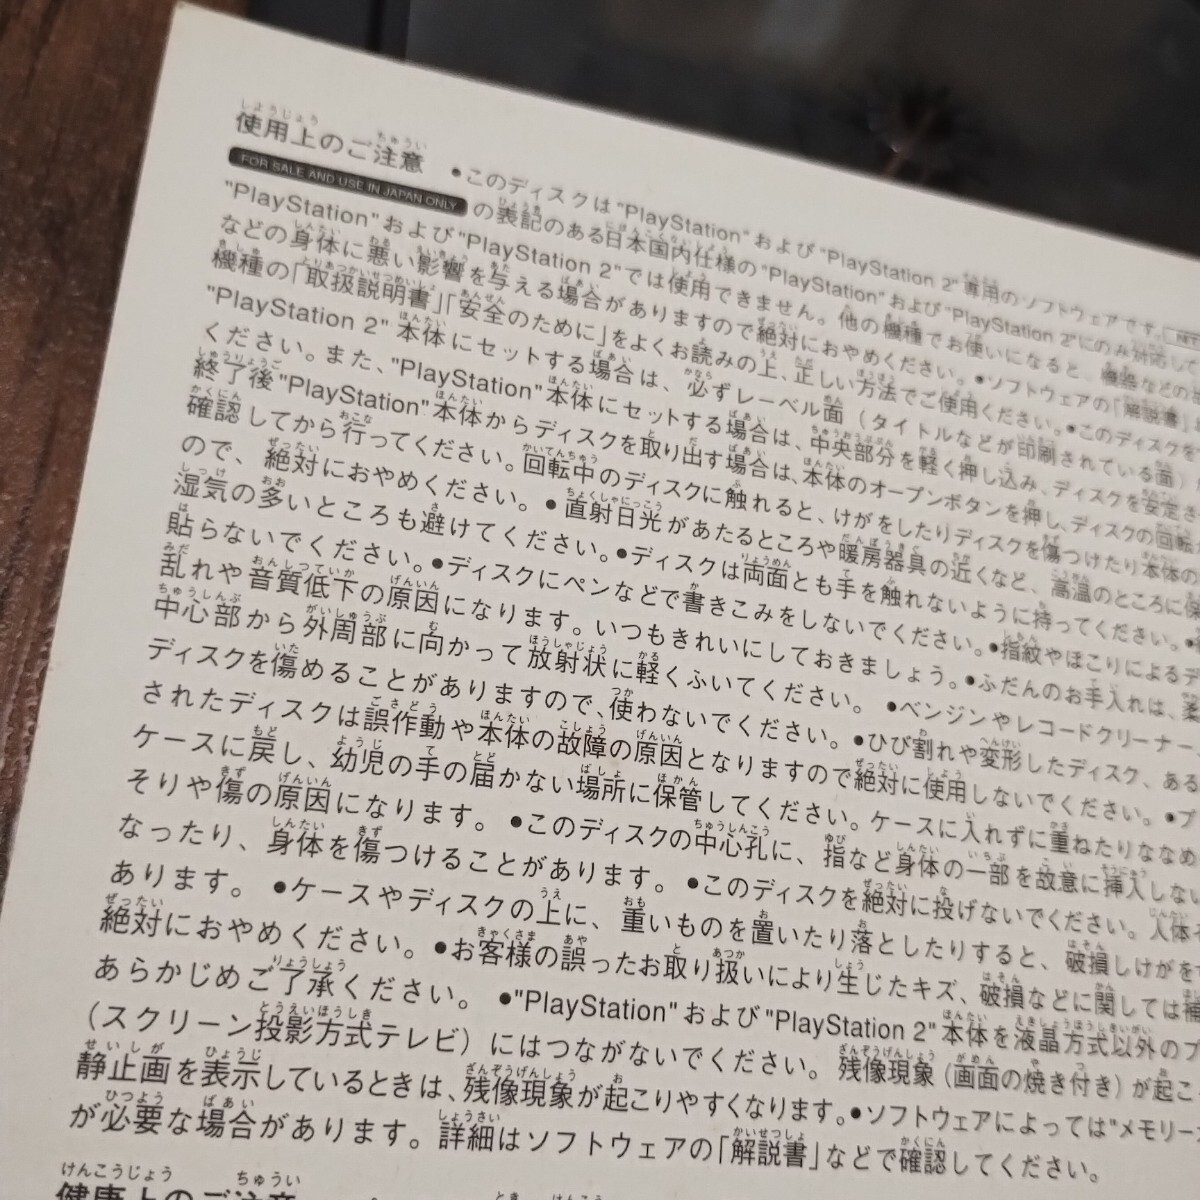 使用上のご注意 ●このディスクは"PlayStation"および"PlayStation 2"専用のソフトウェアです。
FOR SALE AND USE IN JAPAN ONLY の表記のある日本国内仕様の"PlayStation"および"PlayStation 2"にのみ対応して
"PlayStation"および"PlayStation 2"では使用できません。他の機種でお使いになると、機器などの
などの身体に悪い影響を与える場合がありますので絶対におやめください。●ソフトウェアの「解説書」
機種の「取扱説明書」「安全のために」をよくお読みの上、正しい方法でご使用ください。●このディスクを
"PlayStation 2"本体にセットする場合は、必ずレーベル面（タイトルなどが印刷されている面）
ください。また、"PlayStation"本体にセットする場合は、中央部分を軽く押し込み、ディスクを安定
終了後"PlayStation"本体からディスクを取り出す場合は、本体のオープンボタンを押し、ディスクの回転
確認してから行ってください。回転中のディスクに触れると、けがをしたりディスクを傷つけたり本体の
ので、絶対におやめください。●直射日光があたるところや暖房器具の近くなど、高温のところに
湿気の多いところも避けてください。●ディスクは両面とも手を触れないように持ってください。
貼らないでください。●ディスクにペンなどで書きこみをしないでください。●指紋やほこりによるデ
乱れや音質低下の原因になります。いつもきれいにしておきましょう。●ふだんのお手入れは、
中心部から外周部に向かって放射状に軽くふいてください。●ベンジンやレコードクリーナー
ディスクを傷めることがありますので、使わないでください。●ひび割れや変形したディスク、ある
されたディスクは誤作動や本体の故障の原因となりますので絶対に使用しないでください。●プ
ケースに戻し、幼児の手の届かない場所に保管してください。ケースに入れずに重ねたりななめ
そりや傷の原因になります。●このディスクの中心孔に、指など身体の一部を故意に挿入しない
なったり、身体を傷つけることがあります。●このディスクを絶対に投げないでください。人体
あります。●ケースやディスクの上に、重いものを置いたり落としたりすると、破損しけがを
絶対におやめください。●お客様の誤ったお取り扱いにより生じたキズ、破損などに関しては補
あらかじめご了承ください。●"PlayStation"および"PlayStation 2"本体を液晶方式以外のプ
（スクリーン投影方式テレビ）にはつながないでください。残像現象（画面の焼き付き）が起こ
静止画を表示しているときは、残像現象が起こりやすくなります。●ソフトウェアによっては"メモリー
が必要な場合があります。詳細はソフトウェアの「解説書」などで確認してください。
健康上のご注意